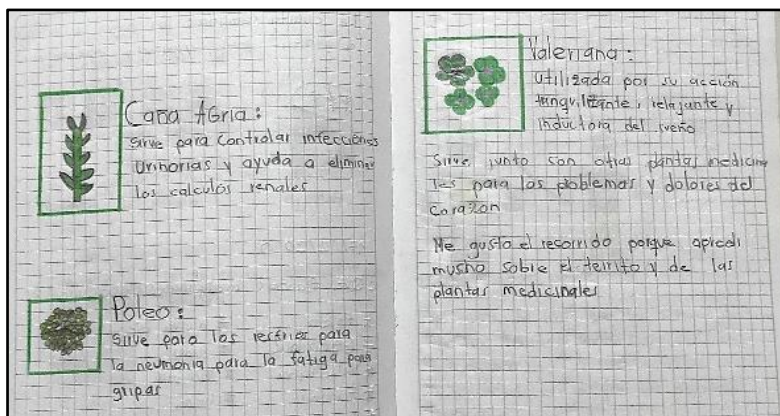 Caña Agria:
sirve para controlar infecciones
urinorias y ayuda a eliminar
los calculos renales
Poleo:
sirve para los resfries para
la neumonia para la fatiga para
gripas
Valeriana:
utilizada por su acción
tranquilizante, relajante y
inductora del sueño
Sirve junto con otras plantas medicina
les para los problemas y dolores del
corazon
Me gusto el recorrido porque apredi
musho sobre el territo y de las
plantas medicinales